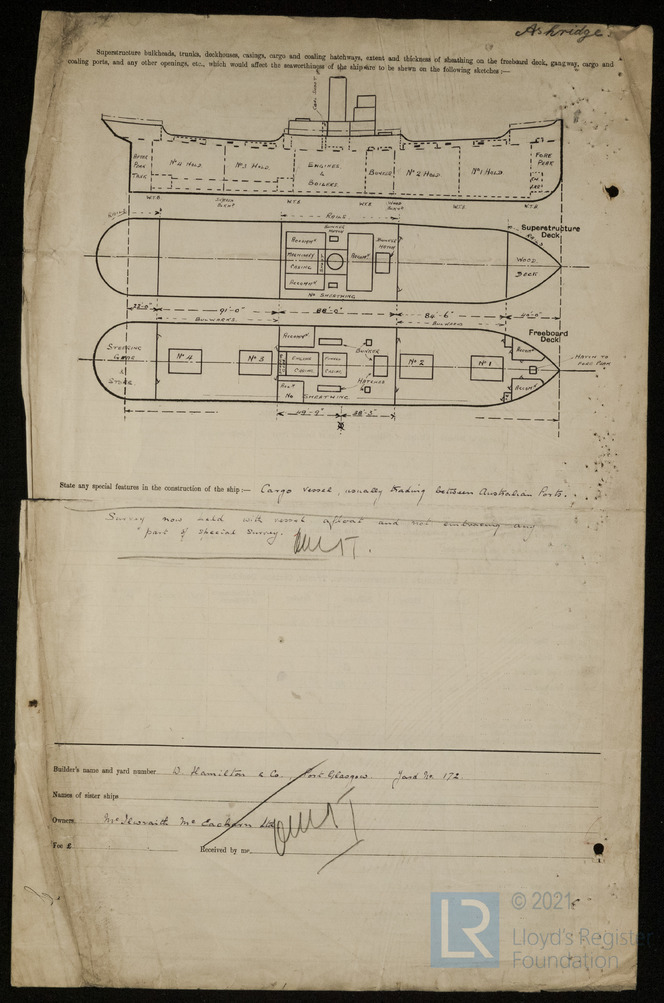 Ashridge.
Superstructure bulkheads, trunks, deckhouses, casings, cargo and coaling hatchways, extent and thickness of sheathing on the freeboard deck, gangway, cargo and
coaling ports, and any other openings, etc., which would affect the seaworthiness of the ship are to be shewn on the following sketches :—
AFTER PEAK TANK
No 4 HOLD.
No 3 HOLD.
ENGINES & BOILERS
BUNKER
No 2 HOLD
No 1 HOLD
FORE PEAK
W.T.B.
W.T.B.
W.T.B.
W.T.B.
W.T.B.
RAILS
RAILS
Superstructure Deck
ACCOMMT
BUNKER HATCH
MACHINERY CASING
ACCOMT
BUNKER HATCH
ACCOMT
NO SHEATHING
WOOD DECK
22'-0"
91'-0"
88'-0"
84'-6"
40'-0"
BULWARKS.
BULWARKS
Freeboard Deck
STEERING GEAR & STORE
No 4
No 3
ACCOMMT
ENGINE CASING
CASING
BUNKER
HATCHES
No 2
No 1
ACCOMT
ACCOMT
HATCH TO FORE PEAK
No SHEATHING
49'-9"
38'-3"
State any special features in the construction of the ship :— Cargo vessel, usually trading between Australian Ports.
Survey now held with vessel afloat and not embracing any
part of special survey.
Builder's name and yard number D. Hamilton & Co., Port Glasgow Yard No 172.
Names of sister ships
Owners McIlwraith McEacharn Ltd
Fee £
Received by me
© 2021
LR
Lloyd's Register
Foundation